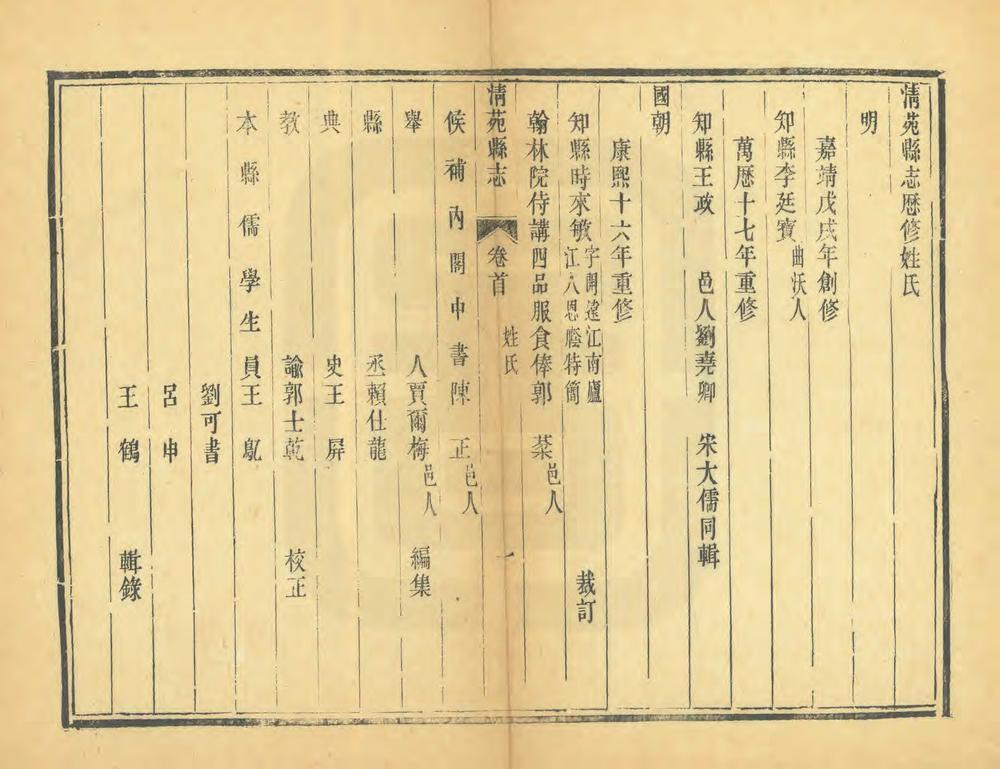 清苑縣志歷修姓氏
明
嘉靖戊戌年創修
知縣李廷寶曲沃人
萬歷十七年重修
知縣王政 邑人劉堯卿 宋大儒同輯
國朝
康熙十六年重修
知縣時來敏字開遠江南廬江人恩廕特簡 裁訂
翰林院侍講四品服食俸郭棻邑人
清苑縣志 卷首 姓氏 一
候補內閣中書陳正邑人
舉人賈爾梅邑人 編集
縣丞賴仕龍
典史王屏
教諭郭士乾 校正
本縣儒學生員王
劉可書
呂申
王鶴 輯錄